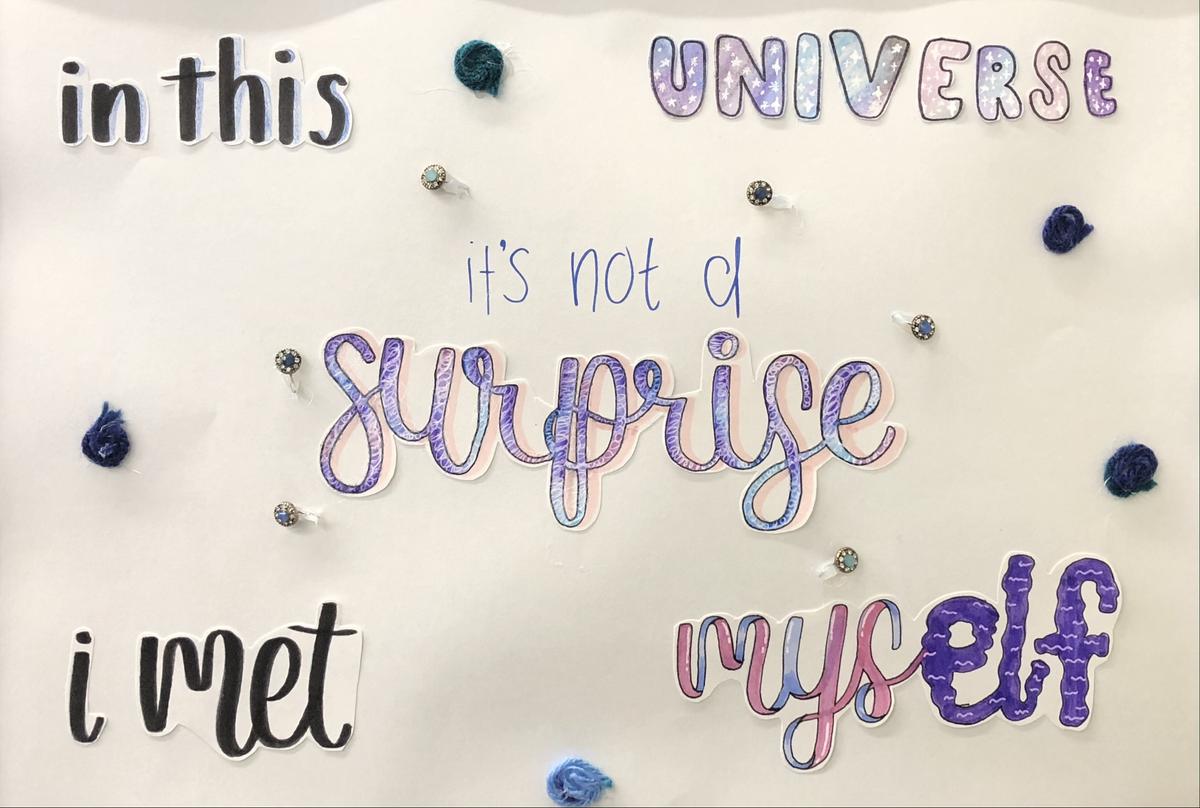 in this UNIVERSE
it's not a
surprise
i met myself